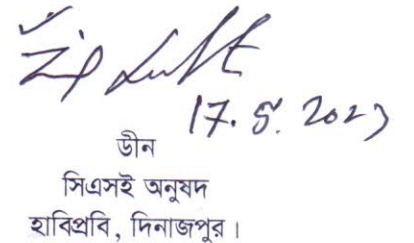 17. 5. 2023
ডীন
সিএসই অনুষদ
হাবিপ্রবি, দিনাজপুর।